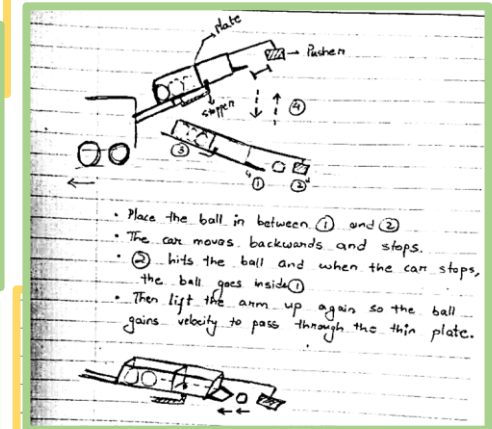 Plate
Pusher
stopper
④
③
①
②
• Place the ball in between ① and ②
• The car moves backwards and stops.
• ② hits the ball and when the car stops,
the ball goes inside ①
• Then lift the arm up again so the ball
gains velocity to pass through the thin plate.